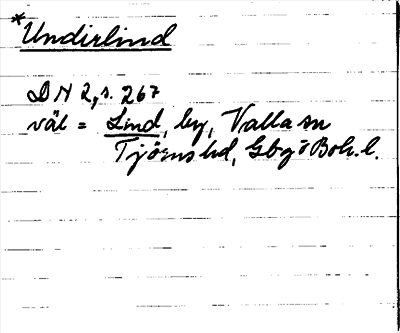 *Undirlind
DN 2, s. 267
väl = Lind, by, Valla sn
Tjörns hd, Gbg o Boh. l.